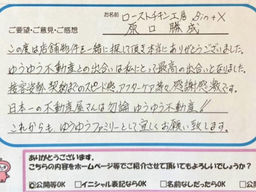 お名前 ローストチキン工房 Sin+X
ご要望・ご意見・ご感想 原口勝成
この度は店舗物件を一緒に探して頂き本当にありがとうございました。
ゆうゆう不動産との出会いは私にとって最高の出会いとなりました。
接客姿勢、契約までのスピード感、アフターケア等々感謝感激です。
日本一の不動産屋さんは勿論ゆうゆう不動産!!
これからもゆうゆうファミリーとして宜しくお願い致します。
ありがとうございます。
これからの内容をホームページ等でご紹介させて頂いてもよろしいでしょうか?
公開等OK □イニシャル表記ならOK □名前なしだったらOK